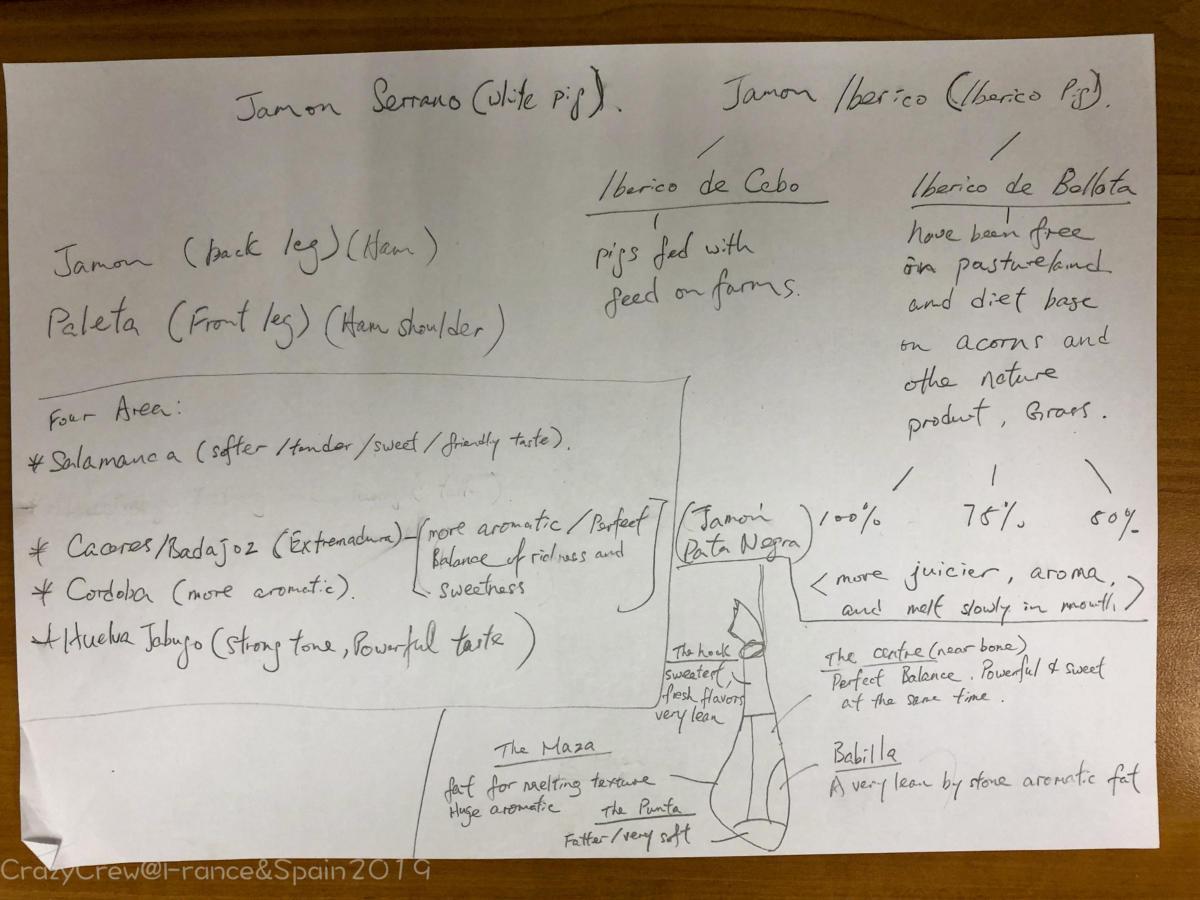 Jamon Serrano (white pig).
Jamon Iberico (Iberico Pig).
Iberico de Cebo
pigs fed with
feed on farms.
Iberico de Bellota
have been free
in pastureland
and diet base
on acorns and
othe nature
product, Grass.
Jamon (back leg) (Ham)
Paleta (Front leg) (Ham shoulder)
Four Area:
* Salamanca (softer/tender/sweet/friendly taste).
* Caceres/Badajoz (Extremadura) - [more aromatic/Perfect
Balance of richness and
sweetness]
* Cordoba (more aromatic).
* Huelva Jabugo (strong tone, Powerful taste)
(Jamon
Pata Negra)
100% 75% 50%
<more juicier, aroma,
and melt slowly in mouth.>
The hock
sweatest,
fresh flavors
very lean
The centre (near bone)
Perfect Balance. Powerful & sweet
at the same time.
The Maza
fat for melting texture
Huge aromatic
The Punta
Fatter/very soft
Babilla
A very lean by stone aromatic fat
CrazyCrew@France&Spain2019